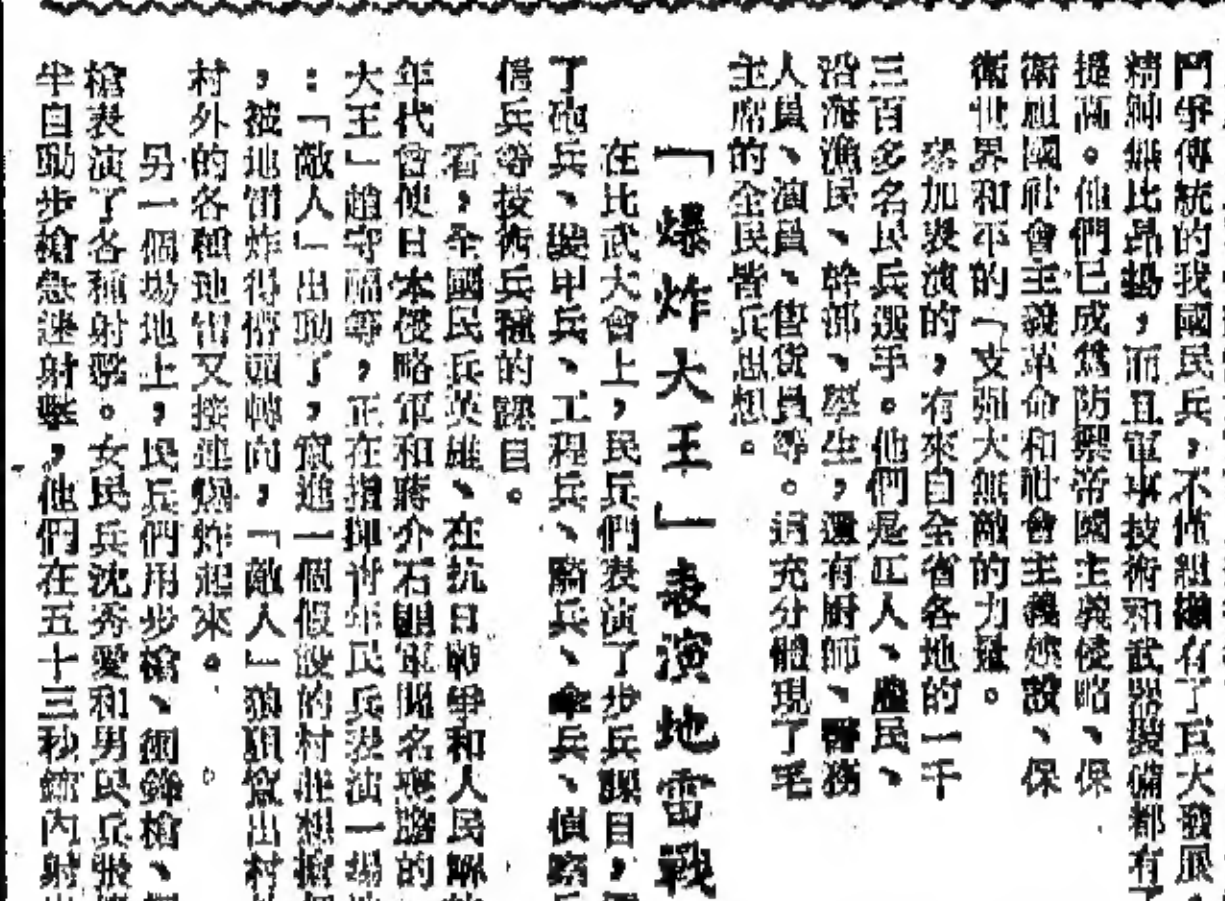 鬥爭傳統的我國民兵，不僅組織有了巨大發展，
精神無比昂揚，而且軍事技術和武器裝備都有了
提高。他們已成為防禦帝國主義侵略、保
衛祖國社會主義革命和社會主義建設、保
衛世界和平的一支強大無敵的力量。
參加表演的，有來自全省各地的一千
三百多名民兵選手。他們是工人、農民、
沿海漁民、幹部、學生，還有廚師、醫務
人員、演員、售貨員等。這充分體現了毛
主席的全民皆兵思想。
「爆炸大王」表演地雷戰
在比武大會上，民兵們表演了步兵課目，
了砲兵、裝甲兵、工程兵、騎兵、傘兵、偵察兵
信兵等技術兵種的課目。
看，全國民兵英雄、在抗日戰爭和人民解放
年代曾使日本侵略軍和蔣介石匪軍聞名喪膽的
大王」趙守福等，正在指揮青年民兵表演一場地
：「敵人」出動了，竄進一個假設的村莊想搶
，被地雷炸得暈頭轉向，「敵人」狼狽竄出村
村外的各種地雷又接連爆炸起來。
另一個場地上，民兵們用步槍、衝鋒槍、
槍表演了各種射擊。女民兵沈秀愛和男民兵張
半自動步槍急速射擊，他們在五十三秒鐘內射出